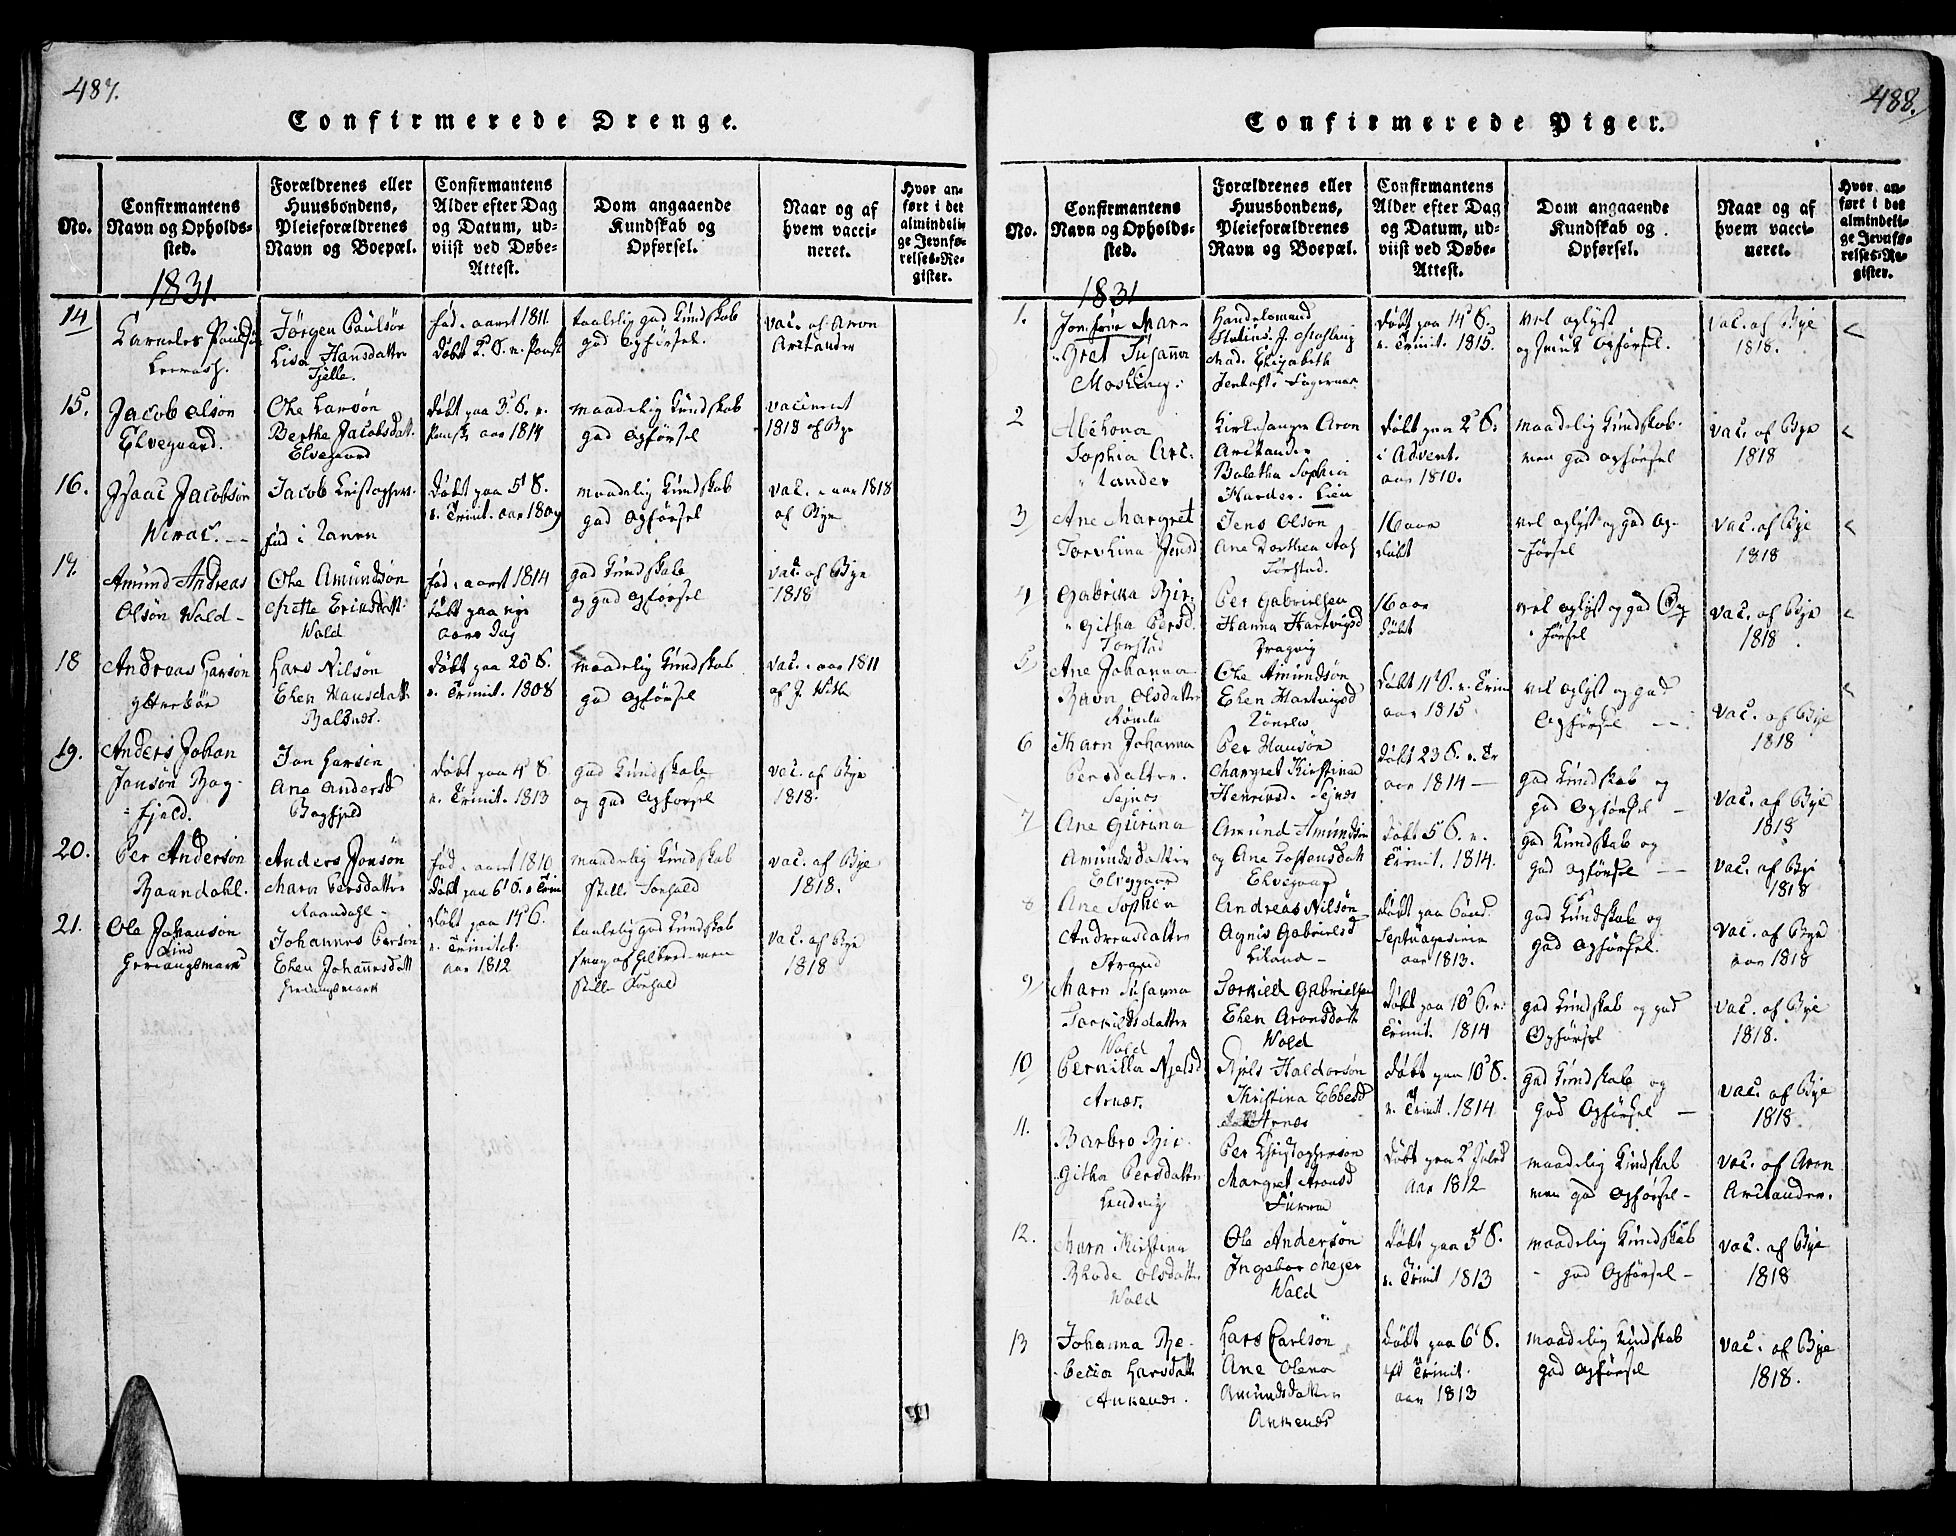 487.
Confirmerede Drenge.
No.
Confirmantens
Navn og Opholds-
sted.
Forældrenes eller
Huusbondens,
Pleieforældrenes
Navn og Boepæl.
Confirmantens
Alder efter Dag
og Datum, ud-
viist ved Døbe-
Attest.
Dom angaaende
Kundskab og
Opførsel.
Naar og af
hvem vacci-
neret.
Hvor an-
ført i det
almindeli-
ge Jevnfø-
relses-Re-
gister.
1831.
14
Carneles
Jørgen Paulsön
Lisa Hansdatter
Fjelle.
fød. aaret 1811.
taalelig god Kundskab
god Opførsel.
vac. af Aron
Arctander
15.
Jacob Olsön
Elvegaard.
Ole Larsön
Berthe Jacobsdatt.
Elvegaard
døbt paa 3 S. e.
Paask. aar 1814
maadelig Kundskab
god Opførsel
vacineret
1818 af Bye
16.
Isaac Jacobsön
Jacob
fød i
døbt paa 5 S.
e. Trinit. aar 1809
maadelig Kundskab
god Opførsel
vac. aar 1818
af Bye
17.
Amünd Andreas
Olsön Wald -
Ole Amündsön
Mette Erinsdatt.
Wald
fød. aaret 1814
døbt paa nye
aars Dag
god Kundskab
og god Opførsel
vac. af Bye
1818
18
Andreas Larsön
Lars Nilsön
Elen Hansdatt
Balsnes.
døbt paa 20 S.
e. Trinit. 1808
maadelig Kundskab
god Opførsel
vac. aar 1811
af J. With
19.
Anders Johan
Jansön Bog-
fjeld.
Jon Larsön
Ane Andersd
Bogfjeld
døbt paa 4 S
e. Trinit. 1813
god Kundskab
og god Opførsel
vac. af Bye
1818.
20.
Per Andersön
Raandahl.
Anders Jonsön
Maren Persdatter
Raandahl -
fød. aaret 1810.
døbt paa 6 S. e Trin
maadelig Kundskab
stille Forhold
vac. af Bye
1818.
21.
Ole Johansön
Lind
Herjangsmark
Johannes Persön
Elen Johannesdatt
Herjangsmark
døbt paa 14 S.
e. Trinitet.
aar 1812
taalelig god Kundskab
men
stille Forhold
vac. af Bye
1818
488.
Confirmerede Piger.
No.
Confirmantens
Navn og Opholds-
sted.
Forældrenes eller
Huusbondens,
Pleieforældrenes
Navn og Boepæl.
Confirmantens
Alder efter Dag
og Datum, ud-
viist ved Døbe-
Attest.
Dom angaaende
Kundskab og
Opførsel.
Naar og af
hvem vacci-
neret.
Hvor an-
ført i det
almindeli-
ge Jevnfø-
relses-Re-
gister.
1831
1.
Jomfrue Mar-
gret Susanna
Mosling.
Handelsmand
J. Mosling
Mad. Elizabeth
Jentoft. Fagernes
døbt paa 14 S.
e. Trinit. 1815.
vel oplyst
og Opførsel.
vac. af Bye
1818.
2
Sophia Arc-
tander
Kirkesanger Aron
Arctander
Sophia
Harder. Lien
døbt paa 2 S.
i Advent.
aar 1810.
maadelig Kundskab.
men god Opførsel
vac. af Bye
1818
3
Ane Margret
Jensd
Jens Olson
Ane Dorthea
16 aar
døbt
vel oplyst og god Op-
førsel
vac. af Bye
1818
4
Gabrika Bir-
githa Persd.
Torstad
Per Gabrielsen
Hanna Hartvigsd
16 aar
døbt
vel oplyst og god Op-
førsel
vac. af Bye
1818
5
Ane Johanna
Olsdatter
Ole Amündsön
Elen Hartvigsd
døbt 4 S. e. Trin
aar 1815
vel oplyst og god
Opførsel -
vac. af Bye
1818
6
Maren Johanna
Persdatter.
Sejnes
Per Hansön
Margret Kirstina
Henriksd. Sejnes
døbt 23 S. e. Tr
aar 1814 -
god Kundskab og
god Opførsel -
vac. af Bye
1818
7
Ane Gurina
Amündsdatter
Elvegaard
Amünd Amündsön
og Ane Tostensdatt
Elvegaard
døbt 5 S. e.
Trinit. 1814.
god Kundskab og
god Opførsel -
vac. af Bye
1818
8
Ane Sophia
Andreasdatter
Strand
Andreas Nilsön
Agnis Gabrielsd
Liland -
døbt paa Sönd.
Septuagesima
aar 1813.
god Kundskab og
god Opførsel.
vac. af Bye
aar 1818
9
Maren Susanna
Torkildsdatter
Wold
Torkild Gabrielsen
Elen Aronsdatt
Wold
døbt paa 10 S. e.
Trinit. 1814
god Kundskab og god
Opførsel
vac. af Bye
1818.
10
Pernilla Njelsd
Arnæs.
Njels Haldorsön
Kristina Ebbesd
Arnes
døbt paa 10 S.
e. Trinit. 1814
god Kundskab og
god Opførsel -
vac. af Bye
1818.
11.
Barbro Bir-
githa Persdatter
Lenvig
Per Christophersön
Margret Aronsd
døbt paa 2 Juled
aar 1812
maadelig Kundskab
men god Opførsel -
vac. af Aron
Arctander.
12.
Maren Kirstina
Rhode Olsdatter
Wold
Ole Andersön
Ingebor Meger
Wold
døbt paa 5 S.
e. Trinit 1813
maadelig Kundskab
god Opførsel -
vac. af Bye
1818
13
Johanna Re-
becca Larsdatt
Ankenes.
Lars Carlsön
Ane Olena
Amündsdatter
Ankenes
døbt paa 6 S.
Trinit.
aar 1813
maadelig Kundskab
god Opførsel
vac. af Bye
1818.